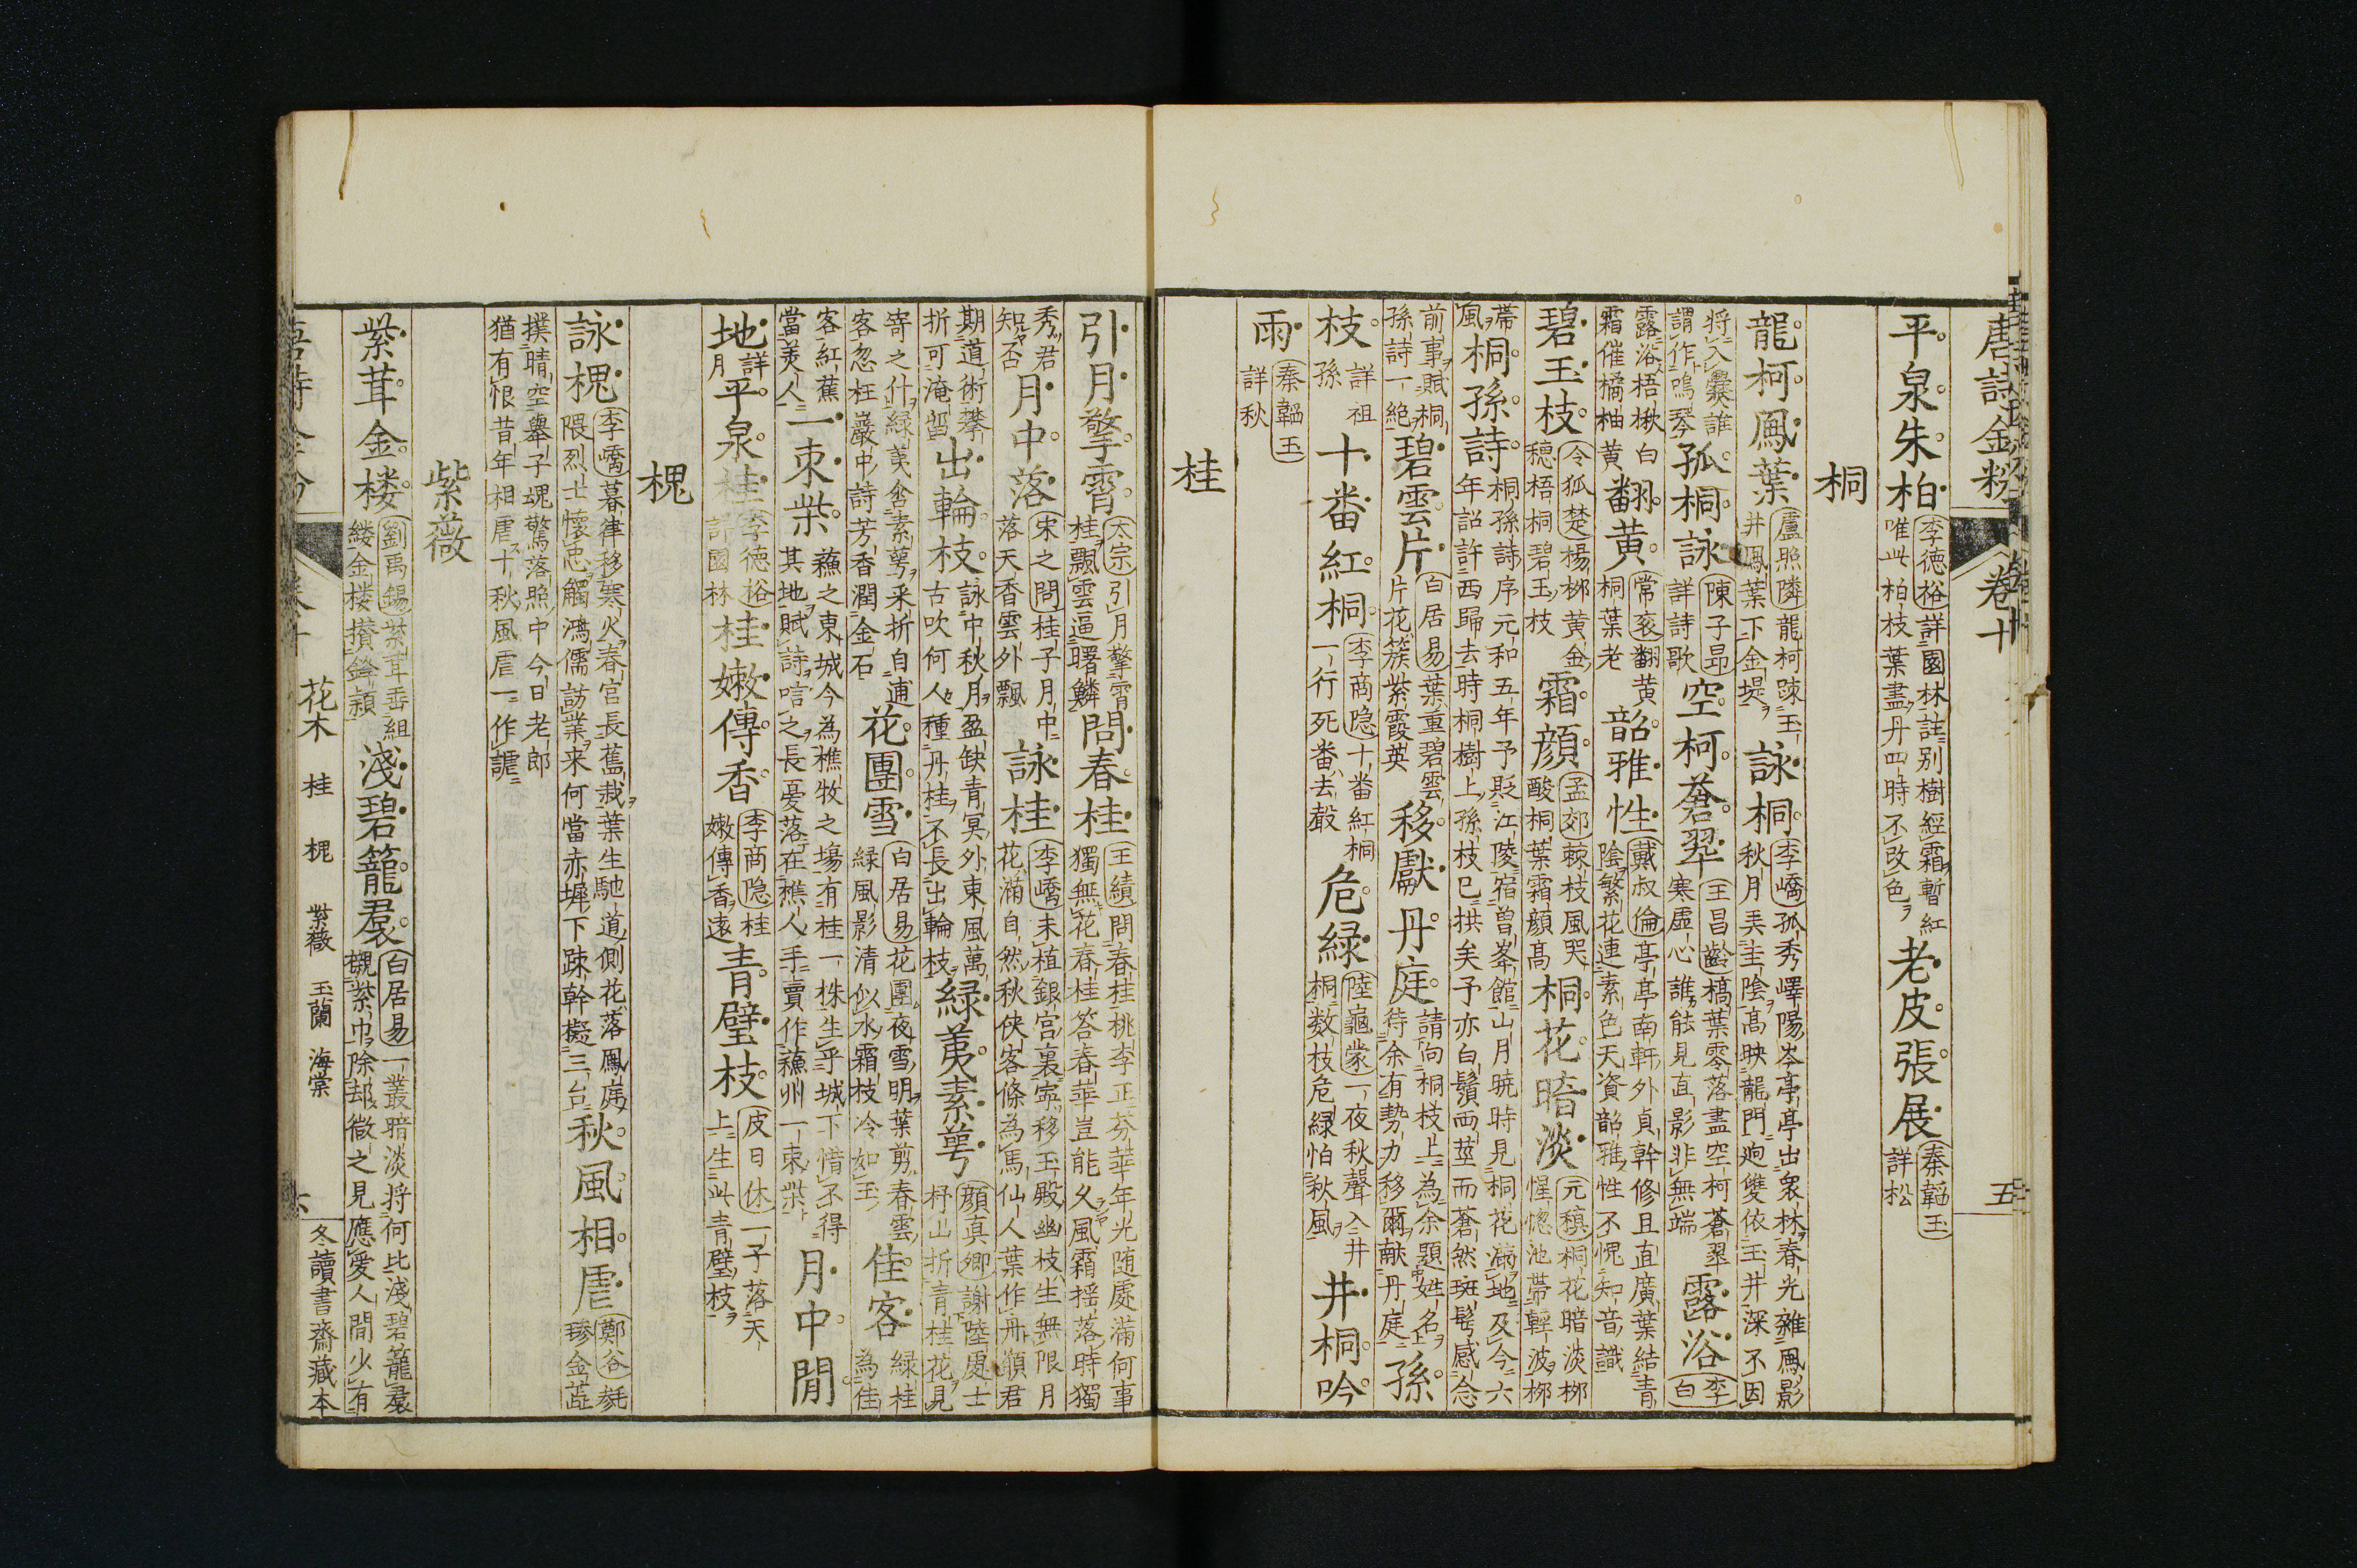 唐詩金粉 卷十 五
平泉朱柏 李德裕 詳國林註別樹經霜暫紅唯此柏枝葉盡丹四時不改色 老皮張展 秦韜玉 詳松
桐
龍柯鳳葉 盧照隣 龍柯踈玉井鳳葉下金堤 詠桐 李嶠 孤秀嶧陽岑亭亭出衆林春光雜鳳影秋月弄圭陰高映龍門逈雙依玉井深不因
將入爨誰謂作鳴琴 孤桐詠 陳子昂 詳詩歌 空柯蒼翠 王昌齡 槁葉零落盡空柯蒼翠寒虛心誰能見直影非無端 露浴 李白
露浴梧楸白霜催橘柚黄 翻黄 常衮 翻黄桐葉老 韶雅性 戴叔倫 亭亭南軒外貞幹修且直廣葉結青陰繁花連素色天資韶雅性不愧知音識
碧玉枝 令狐楚 楊柳黄金穗梧桐碧玉枝 霜顔 孟郊 棘枝風哭酸桐葉霜顔髙 桐花暗淡 元稹 桐花暗淡柳惺憁池帶輕波柳
帶風 桐孫詩 桐孫詩序元和五年予貶江陵宿曽峯館山月暁時見桐花滿地及今六年詔許西歸去時桐樹上孫枝已拱矣予亦白鬚兩莖而蒼然斑髩感念
前事賦桐孫詩一絶 碧雲片 白居易 葉重碧雲片花簇紫霞英 移獻丹庭 請向桐枝上為余題姓名待余有勢力移爾献丹庭 孫
枝 詳祖孫 十畨紅桐 李商隐 十畨紅桐一行死畨去殼 危緑 陸龜蒙 一夜秋聲入井桐数枝危緑怕秋風 井桐吟
雨 秦韜玉 詳秋
桂
引月擎霄 太宗 引月擎霄桂飄雲逼曙鱗 問春桂 王績 問春桂桃李正芬華年光随處滿何事獨無花春桂答春華豈能久風霜揺落時獨
秀君知否 月中落 宋之問 桂子月中落天香雲外飄 詠桂 李嶠 未植銀宮裏寧移玉殿幽枝生無限月花滿自然秋俠客條為馬仙人葉作舟願君
期道術攀折可淹留 出輪枝 詠中秋月盈缺青冥外東風萬古吹何人種丹桂不長出輪枝 緑荑素萼 顔真卿 謝陸處士杼山折青桂花見
寄之什緑荑含素萼采折自逋客忽枉巖中詩芳香潤金石 花團雪 白居易 花團夜雪明葉剪春雲緑風影清似水霜枝冷如玉 佳客 緑桂為佳
客紅蕉當美人 一束柴 蘓之東城今為樵牧之塲有桂一株生乎城下惜不得其地賦詩唁之長憂落在樵人手賣作蘓州一束柴 月中閒
地 詳月 平泉桂 李德裕 詳國林 桂嫩傳香 李商隐 桂嫩傳香遠 青璧枝 皮日休 一子落天上生此青璧枝
槐
詠槐 李嶠 暮律移寒火春宮長舊栽葉生馳道側花落鳳庭隈烈士懷忠觸鴻儒訪業来何當赤墀下踈幹擬三台 秋風相虐 鄭谷 毿毿金蘂
撲晴空舉子魂驚落照中今日老郎猶有恨昔年相虐十秋風虐一作謔
紫薇
紫茸金楼 劉禹錫 紫茸垂組縷金楼攅鋒穎 淺碧籠裠 白居易 一叢暗淡将何比淺碧籠裠襯紫巾除却微之見應愛人間少有
卷十 花木 桂 槐 紫薇 玉蘭 海棠 六 冬讀書齋藏本